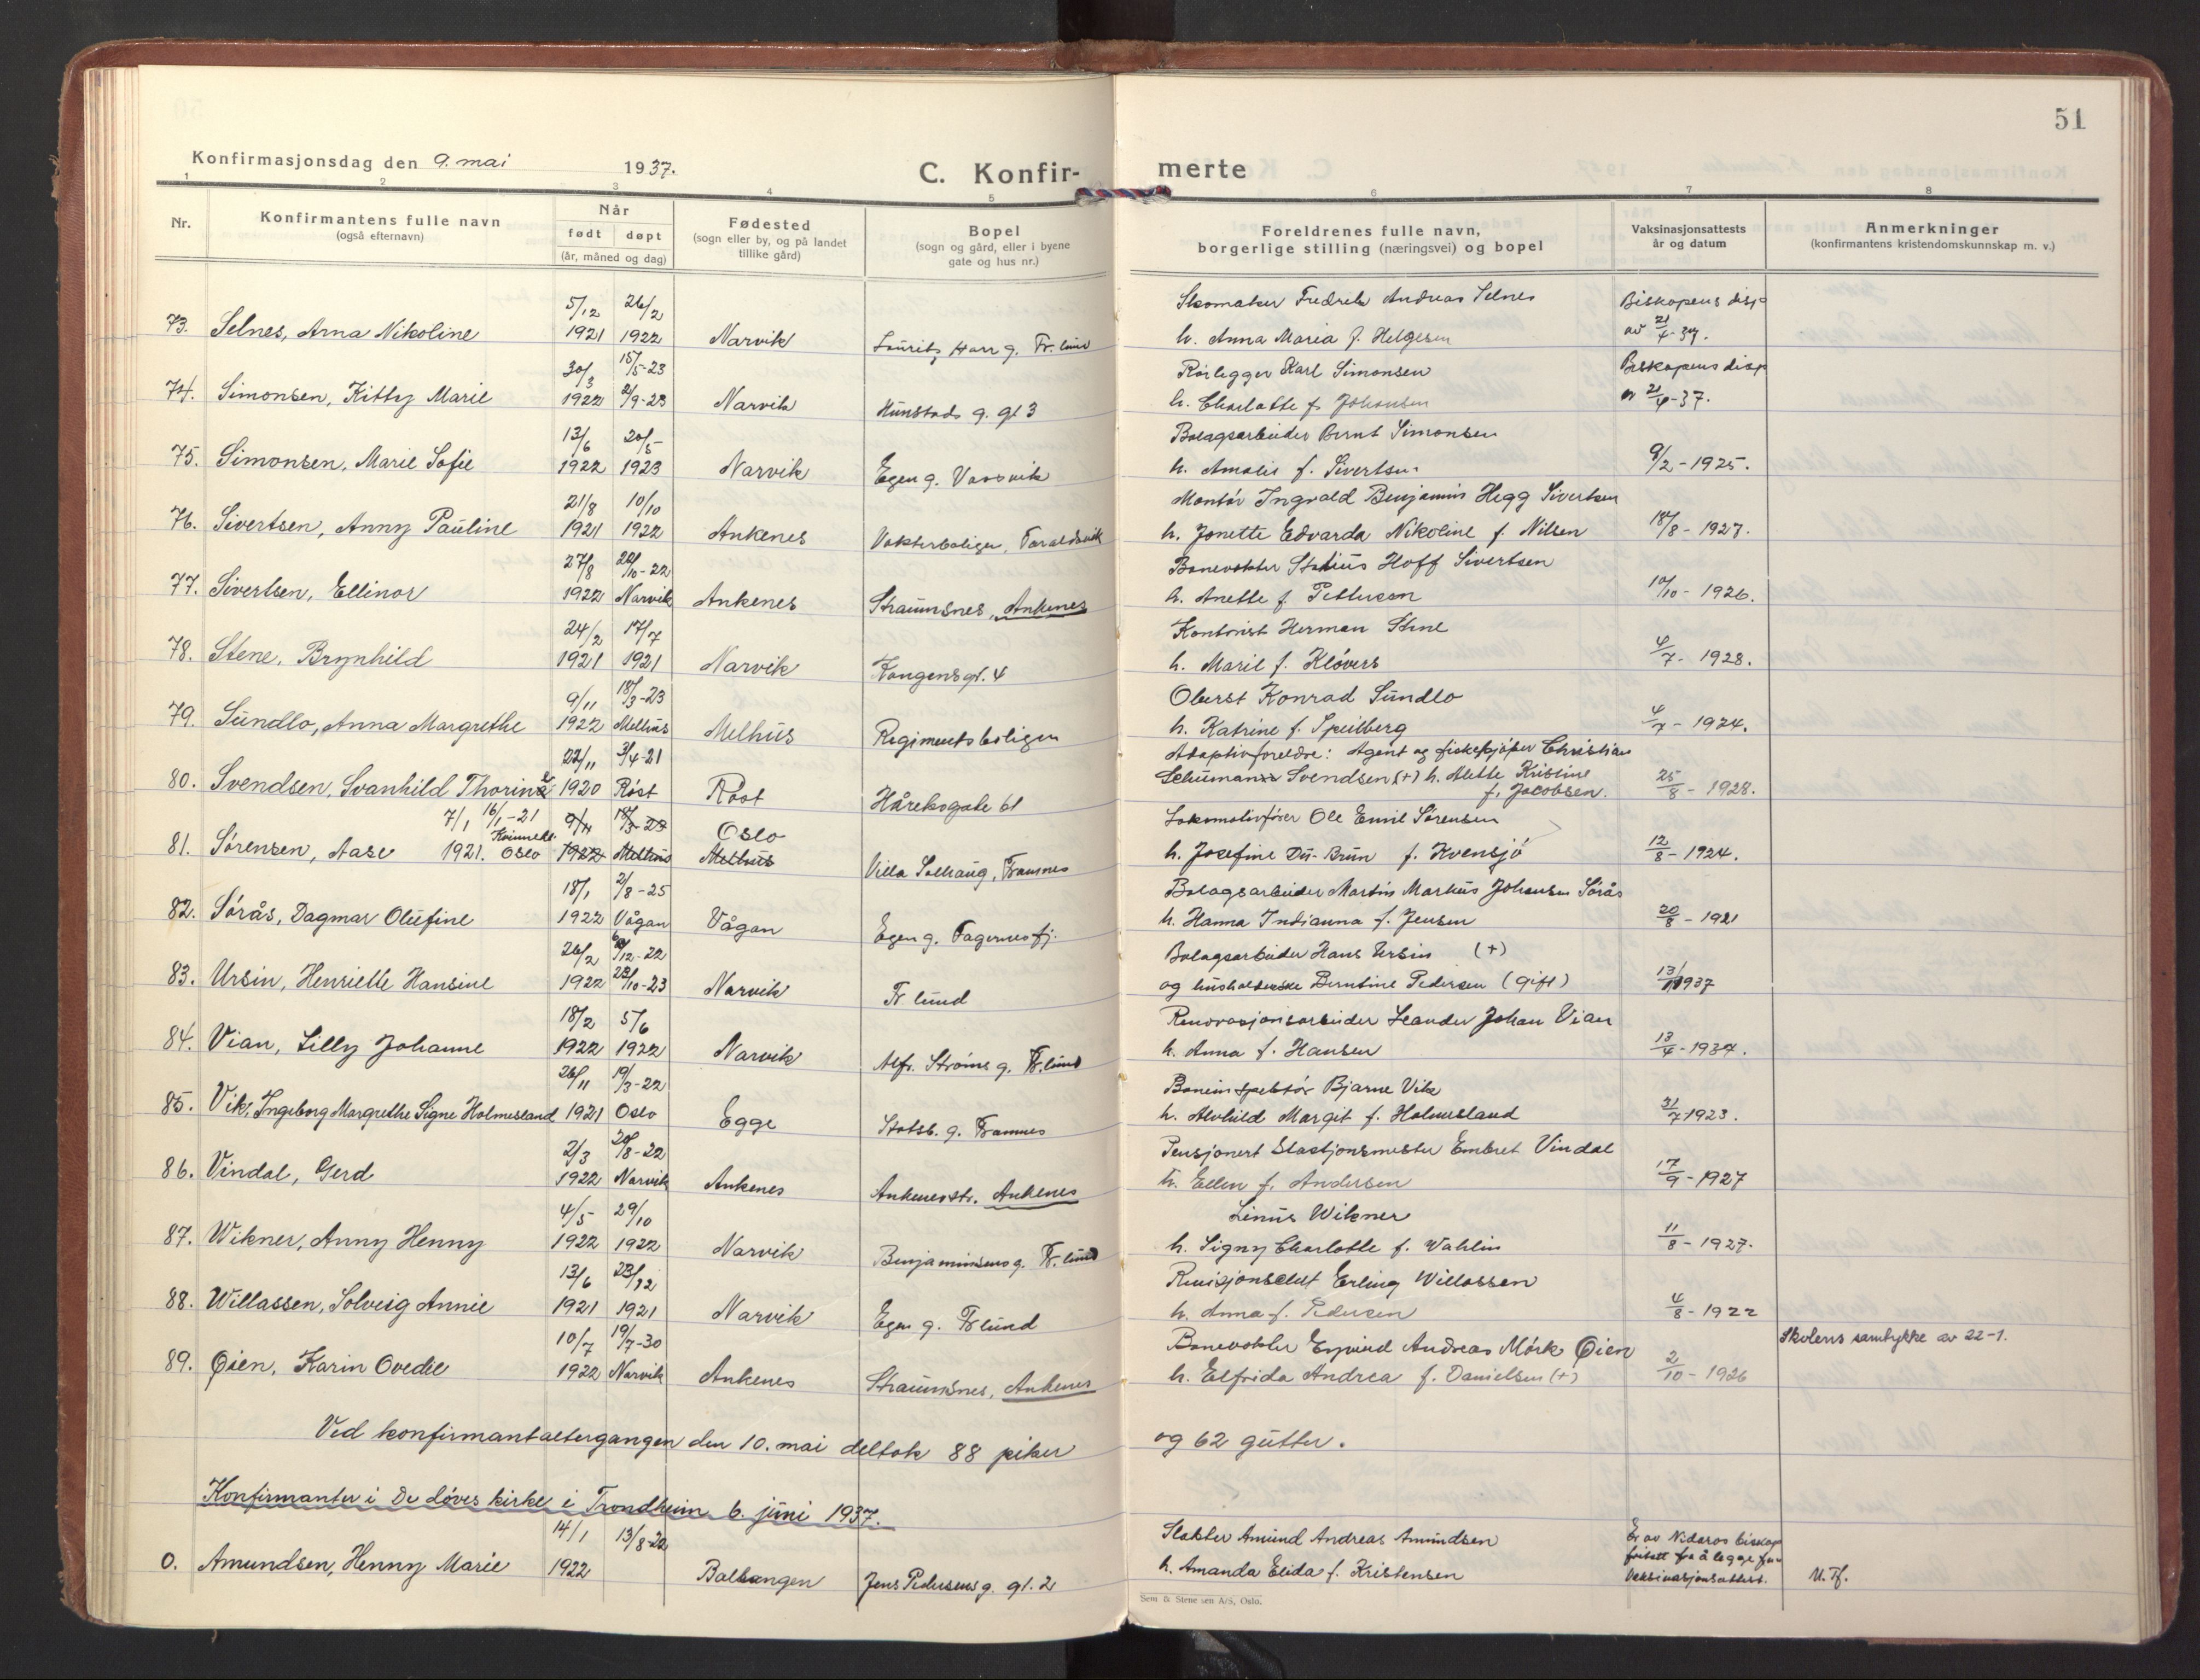 51
Konfirmasjonsdag den 9. mai 1937.
C. Konfir-
merte
1 2 3 4 5 6 7 8
Nr.
Konfirmantens fulle navn
(også efternavn)
Når
født døpt
(år, måned og dag)
Fødested
(sogn eller by, og på landet
tillike gård)
Bopel
(sogn og gård, eller i byene
gate og hus nr.)
Foreldrenes fulle navn,
borgerlige stilling (næringsvei) og bopel
Vaksinasjonsattests
år og datum
Anmerkninger
(konfirmantens kristendomskunnskap m. v.)
5/12 26/2 Skomaker Fredrik Andreas Selnes Biskopens disp
73. Selnes, Arna Nikoline 1921 1922 Narvik Lauritz Harr g. Fr.lund h. Anna Maria f. Helgesen av 21/4-37.
30/3 15/5-23 Rørlegger Karl Simonsen Biskopens disp
74. Simonsen, Kitty Marie 1922 2/9-23 Narvik Kunstads g. gl 3 h. Charlotte f. Johansen av 21/4-37.
13/6 20/5 Bolagsarbeider Bernt Simonsen
75. Simonsen, Marie Sofie 1922 1923 Narvik Egen g. Vassvik h. Amalie f. Sivertsen 9/2-1925.
21/8 10/10 Montør Ingvald Benjamin Hegg Sivertsen
76. Sivertsen, Anny Pauline 1921 1922 Ankenes Vokterboligen, Taraldsvik h. Jonette Edvarda Nikoline f. Nilsen 18/8-1927.
27/8 22/10-22 Banevokter Statius Hoff Sivertsen
77. Sivertsen, Ellinor 1922 Narvik Ankenes Straumsnes, Ankenes h. Anette f. Pettersen 10/10-1926.
24/2 17/7 Kontorist Herman Stene
78. Stene, Brynhild 1921 1921 Narvik Kongensgt. 4 h. Marie f. Kløvers 4/7-1928.
9/11 18/3-23 Oberst Konrad Sundlo
79. Sundlo, Anna Margrethe 1922 Melhus Melhus Regimentsboligen h. Katrine f. Speilberg 4/7-1924.
22/11 3/4-21 Adoptivforeldre: Agent og fiskekjøper Christian
80. Svendsen, Svanhild Thorina 1920 Røst Røst Håreksgate 61 Schumann Svendsen (+) h. Mette Kristine 25/8-1928.
f. Jacobsen.
7/1 16/1-21 9/11 18/3-23 Oslo Lokomotivfører Ole Emil Sørensen
Kvinnekl.
81. Sørensen, Aase 1921. Oslo 1922 Melhus Melhus Villa Solhaug, Framnes h. Josefine Du-Brun f. Kvensjø 12/8-1924.
18/1 2/8-25 Bolagsarbeider Martin Markus Johansen Sørås
82. Sørås, Dagmar Olufine 1922 Vågan Vågan Egen g. Fagernesfj. h. Hanna Indianna f. Jensen 20/8-1921
26/2 /12-22 Bolagsarbeider Hans Ursin (+)
83. Ursin, Henriette Hansine 1922 28/10-23 Narvik Fr lund og husholderske Berntine Pedersen (gift) 13/ 1937
18/2 5/6 Renovasjonsarbeider Leander Johan Vian
84. Vian, Lilly Johanne 1922 1922 Narvik Alfr. Strøms g. Fr.lund h. Anna f. Hansen 13/4-1937.
26/11 19/3-22 Baneinspektør Bjarne Vik
85. Vik, Ingeborg Margrethe Signe Holmesland 1921 Oslo Egge Statsb. g. Framnes h. Alvhild Margit f. Holmesland 31/7 1923.
2/3 20/8-22 Pensjonert Stasjonsmester Embret Vindal
86. Vindal, Gerd 1922 Narvik Ankenes Ankenesstr. Ankenes h. Ellen f. Andersen 17/9-1927
4/5 29/10 Linus Wikner
87. Wikner, Anny Henny 1922 1922 Narvik Benjaminsens g. Fr.lund h. Signy Charlotte f. Wahlin 11/8-1927.
13/6 23/12 Revisjonselst Erling Willassen
88. Willassen, Solveig Annie 1921 1921 Narvik Egen g. Fr lund h. Anna f. Pedersen 4/8-1922
10/7 19/7-30 Banevokter Eyvind Andreas Mørk Øien Skolens samtykke av 22-1.
89. Øien, Karin Ovedie 1922 Narvik Ankenes Straumsnes, Ankenes h. Elfrida Andrea f. Danielsen (+) 2/10-1926
Ved konfirmantaltergangen den 10. mai deltok 88 piker og 62 gutter.
Konfirmanter i De døves kirke i Trondheim 6. juni 1937.
14/1 13/8-22 Slakter Amund Andreas Amundsen Er av Nidaros biskop
fritatt fra å legge fram
0. Amundsen, Henny Marie 1922 Balsangen Jens Pedersens g. gl. 2 h. Amanda Elida f. Kristensen Vaksinasjonsattest. U. Tf.
Sem & Stenersen A/S, Oslo.